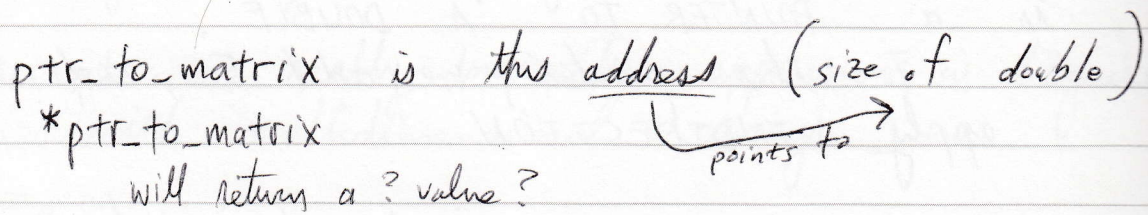 ptr_to_matrix is this address (size of double)
*ptr_to_matrix
points to
will return a ? value ?